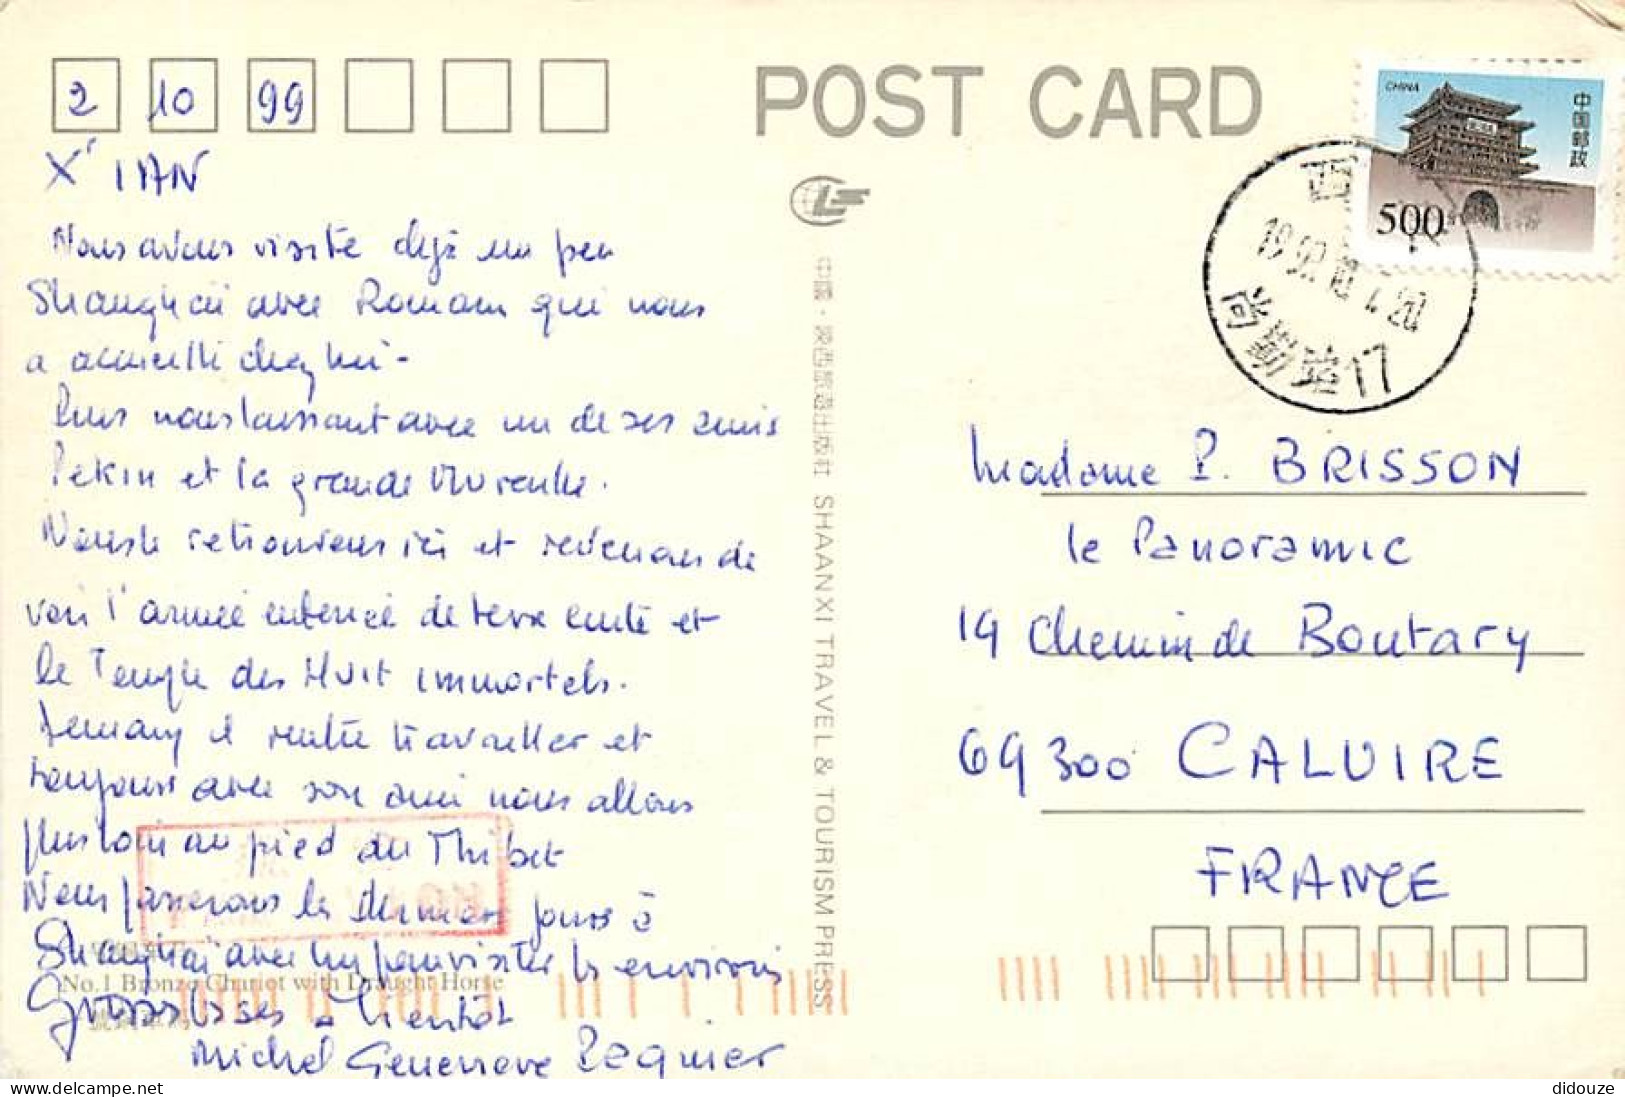 2 10 99
POST CARD
CHINA
中国邮政
500
X'IAN
Nous avons visité déjà un peu
Shanghaï avec Romain qui nous
a accueilli chez lui -
Puis nous laissant avec un de ses amis
Pékin et la grande Muraille.
Nous le retrouvons ici et revenons de
voir l'armée enterrée de terre cuite et
le Temple des Huit immortels.
Demain il rentre travailler et
toujours avec son ami nous allons
plus loin au pied du Thibet
Nous passerons les derniers jours à
Shanghaï avec lui pour visiter les environs
Grosses bises à bientôt
Michel Geneviève Regnier
No.1 Bronze Chariot with Draught Horse
中国·陕西旅游出版社 SHAANXI TRAVEL & TOURISM PRESS
西
尚勤路17
Madame P. BRISSON
le Panoramic
14 Chemin de Boutary
69300 CALUIRE
FRANCE
didouze